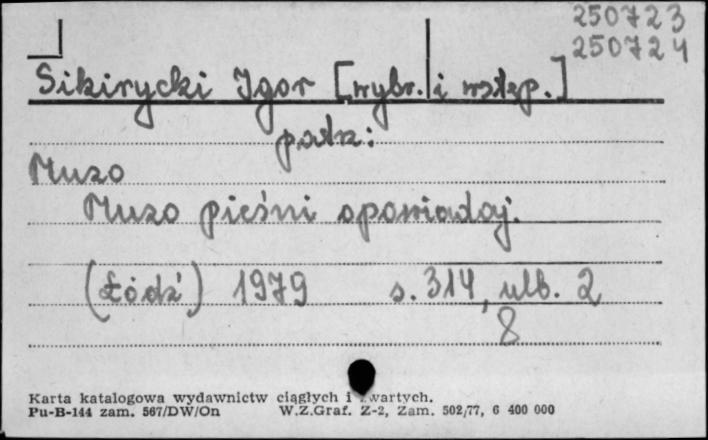 250723
250724
Sikirycki Igor [wybr. i wstęp.]
patrz:
Muzo
Muzo pieśni opowiadaj.
(Łódź) 1979 s. 314, ulb. 2
8
Karta katalogowa wydawnictw ciągłych i zwartych.
Pu-B-144 zam. 567/DW/On W.Z.Graf. Z-2, Zam. 502/77, 6 400 000